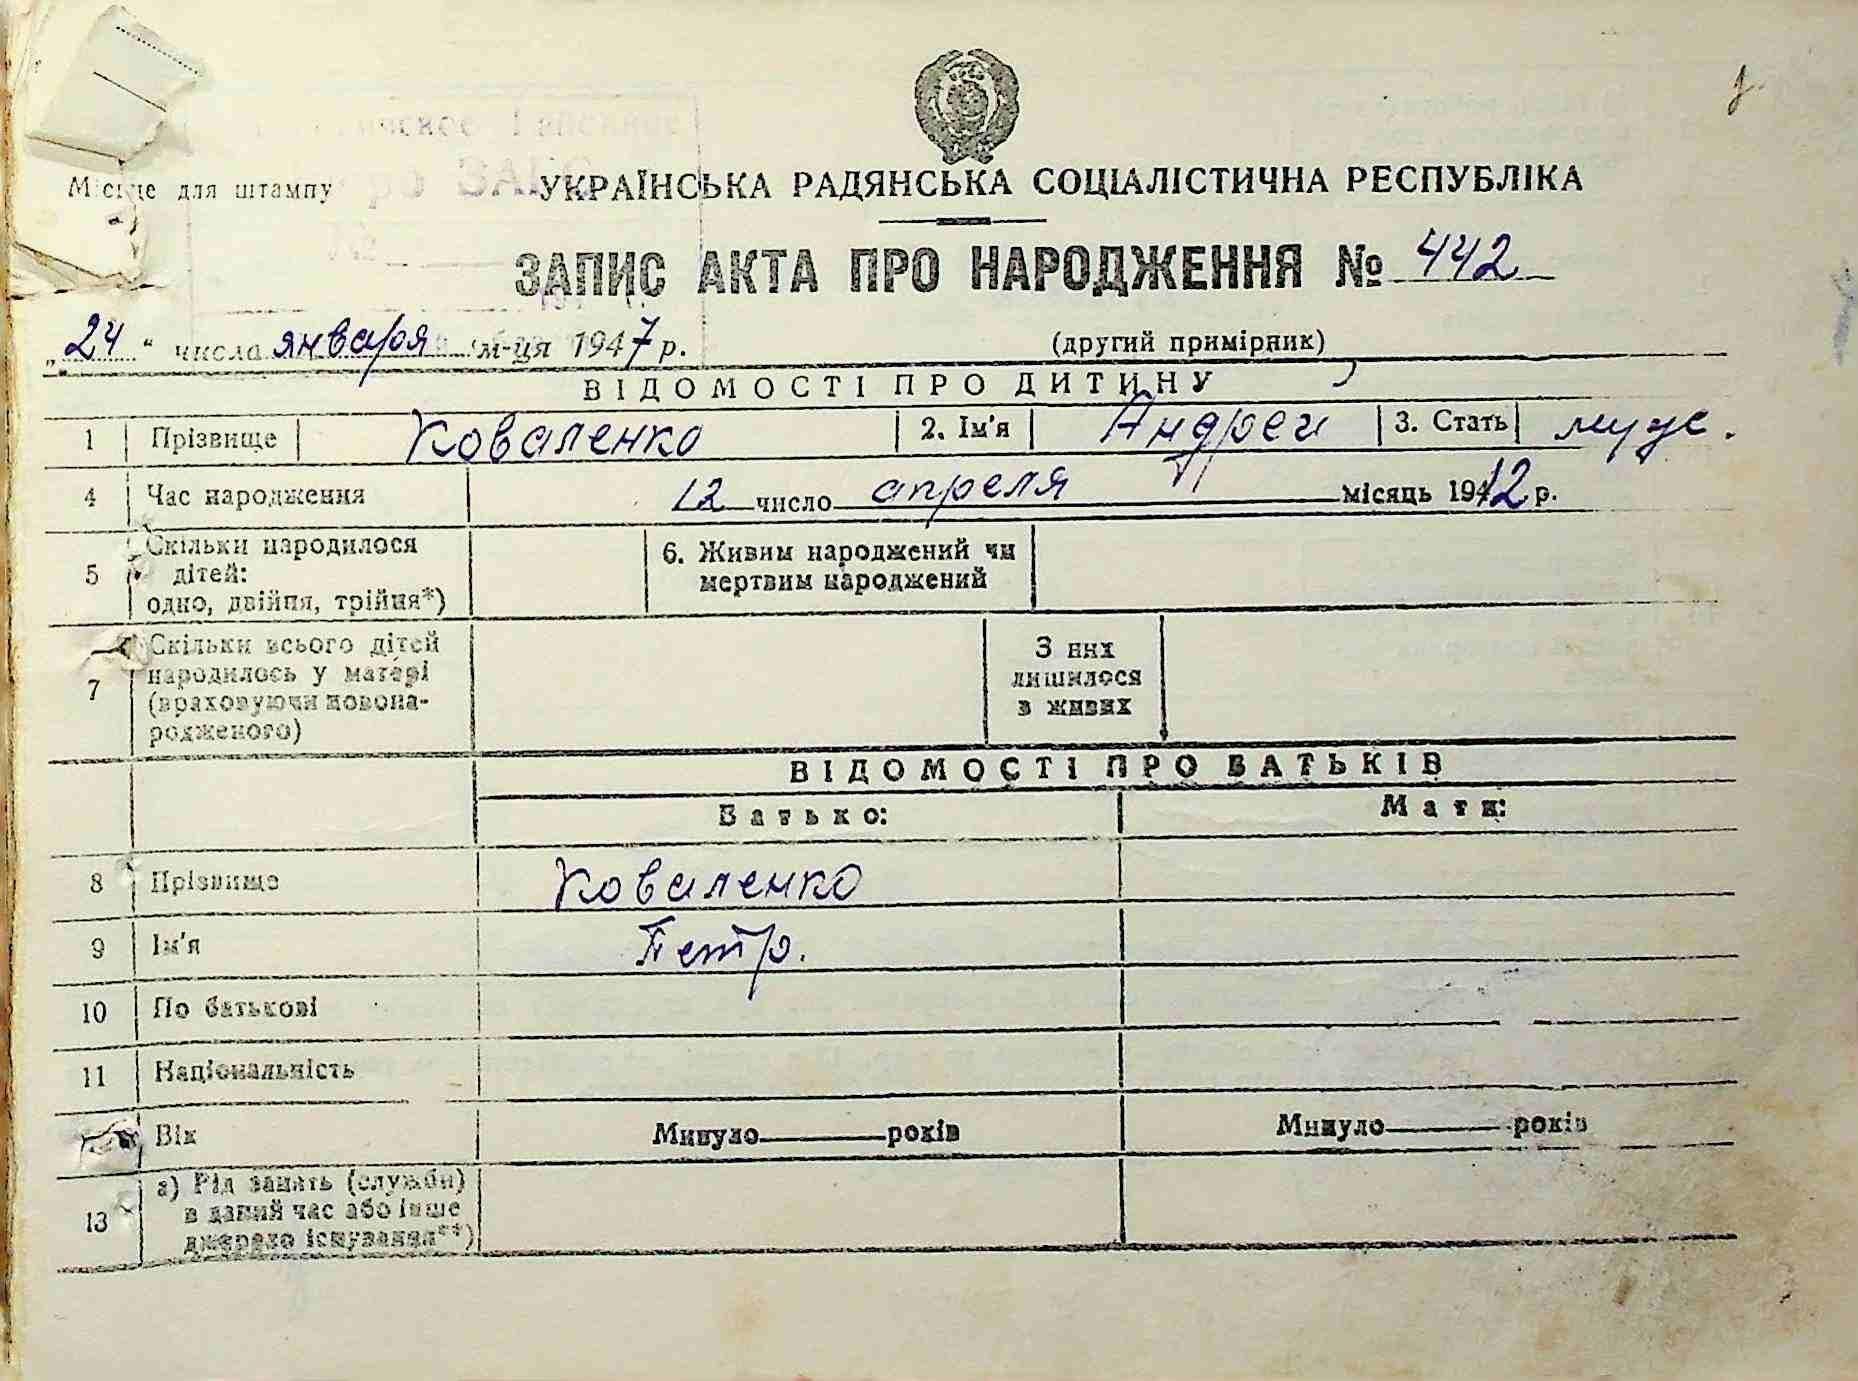 Місце для штампу
УКРАЇНСЬКА РАДЯНСЬКА СОЦІАЛІСТИЧНА РЕСПУБЛІКА
ЗАПИС АКТА ПРО НАРОДЖЕННЯ № 442
„24“ числа января м-ця 1947 р.
(другий примірник)
ВІДОМОСТІ ПРО ДИТИНУ
1 Прізвище Коваленко 2. Ім'я Андреи 3. Стать муж.
4 Час народження 12 число апреля місяць 1942 р.
5 Скільки народилося дітей: одно, двійня, трійня*)
6. Живим народжений чи мертвим народжений
7 Скільки всього дітей народилось у матері (враховуючи новонародженого)
З них лишилося в живих
ВІДОМОСТІ ПРО БАТЬКІВ
Батько: Мати:
8 Прізвище Коваленко
9 Ім'я Петр.
10 По батькові
11 Національність
Вік Минуло років Минуло років
13 а) Рід занять (служби) в даний час або інше джерело існування**)